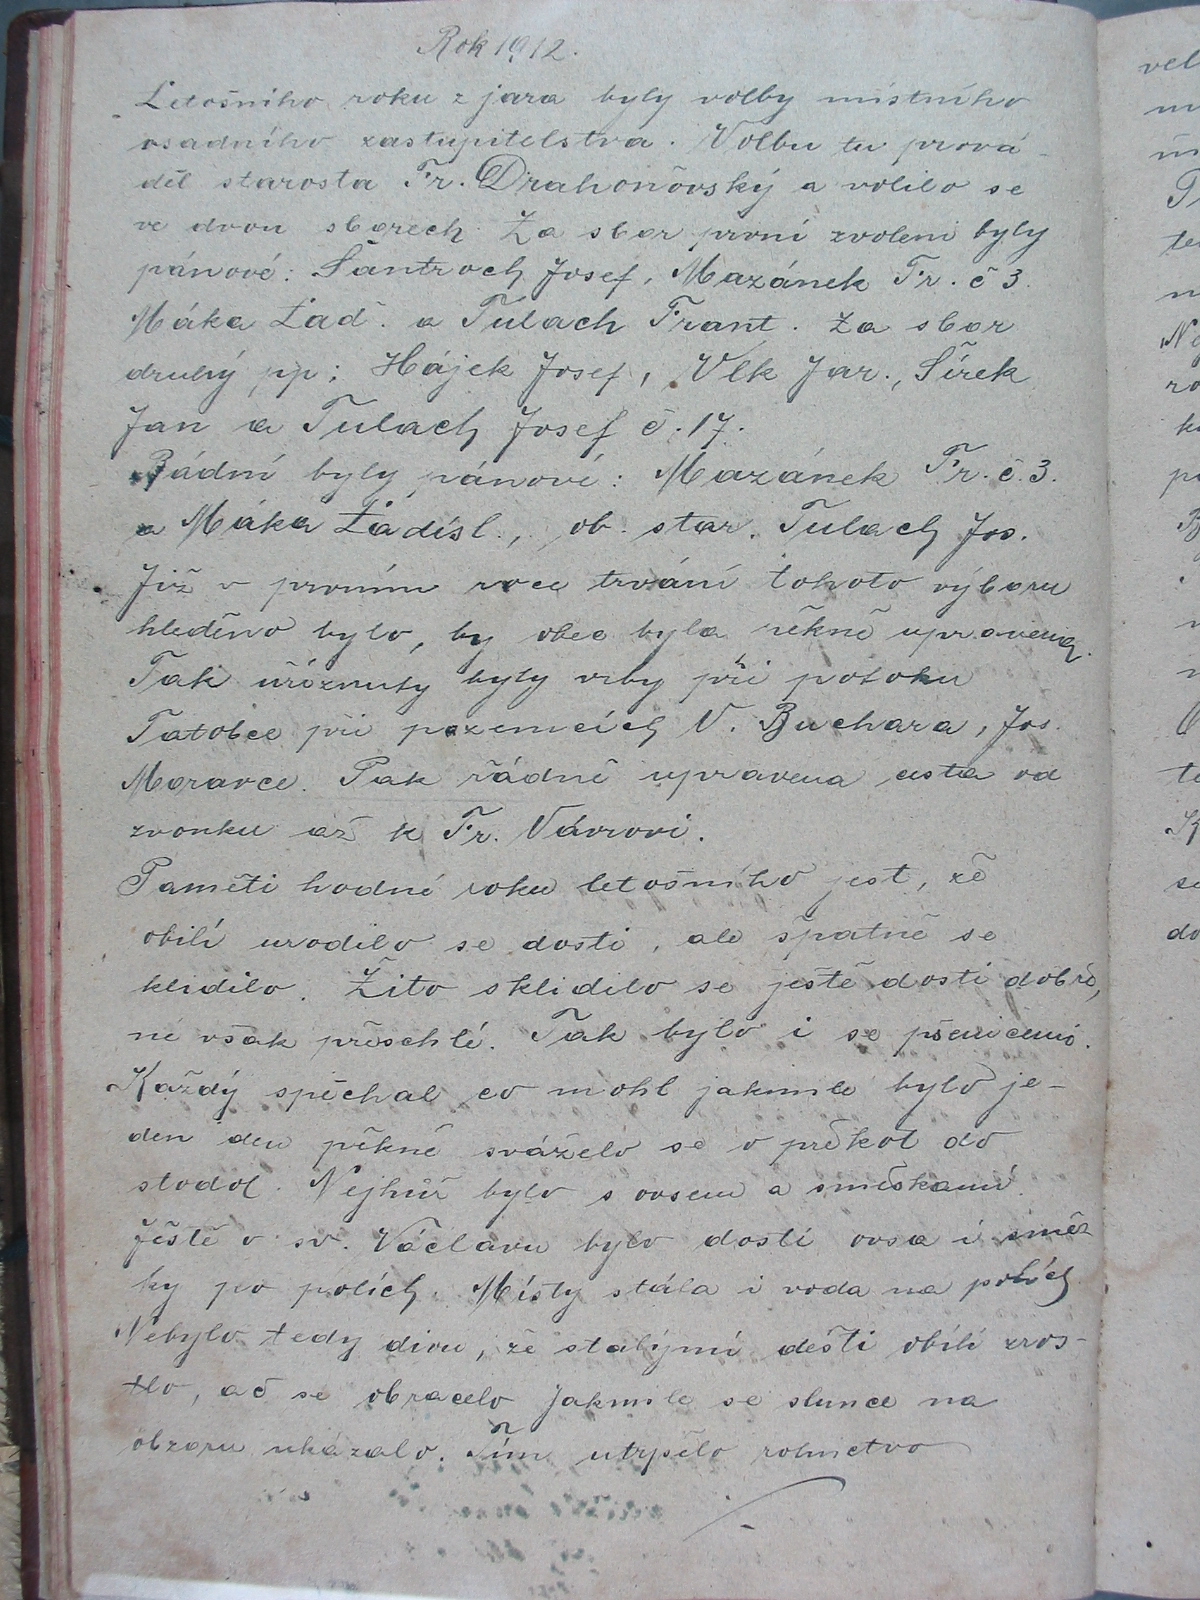 Rok 1912.
Letošního roku z jara byly volby místního
osadního zastupitelstva. Volbu tu prová-
děl starosta Fr. Drahoňovský a volilo se
ve dvou sborech. Za sbor první zvoleni byly
pánové: Šantroch Josef, Mazánek Fr. č 3.
Máka Lad. a Tulach Frant. Za sbor
druhý pp: Hájek Josef, Vlk Jar., Šírek
Jan a Tulach Josef č. 17.
Řádní byly pánové: Mazánek Fr. č. 3.
a Máka Ladisl., ob. star. Tulach Jos.
Již v prvním roce trvání tohoto výboru
hleděno bylo, by obec byla pěkně upravena.
Tak uříznuty byly vrby při potoku
Tatobce při pozemcích V. Buchara, Jos.
Moravce. Pak řádně upravena cesta od
zvonku až k Fr. Vávrovi.
Paměti hodné roku letošního jest, že
obilí urodilo se dosti, ale špatně se
klidilo. Žito sklidilo se ještě dosti dobře,
ne však přeschlé. Tak bylo i se pšenicemi.
Každý spěchal co mohl jakmile bylo je-
den den pěkně sváželo se o překot do
stodol. Nejhůř bylo s ovsem a směskami.
Ještě o sv. Václavu bylo dosti ovsa i směs-
ky po polích. Místy stála i voda na polích
Nebylo tedy divu, že stalými dešti obilí zros-
tlo, ač se obracelo jakmile se slunce na
obzoru ukázalo. Tím utrpělo rolnictvo